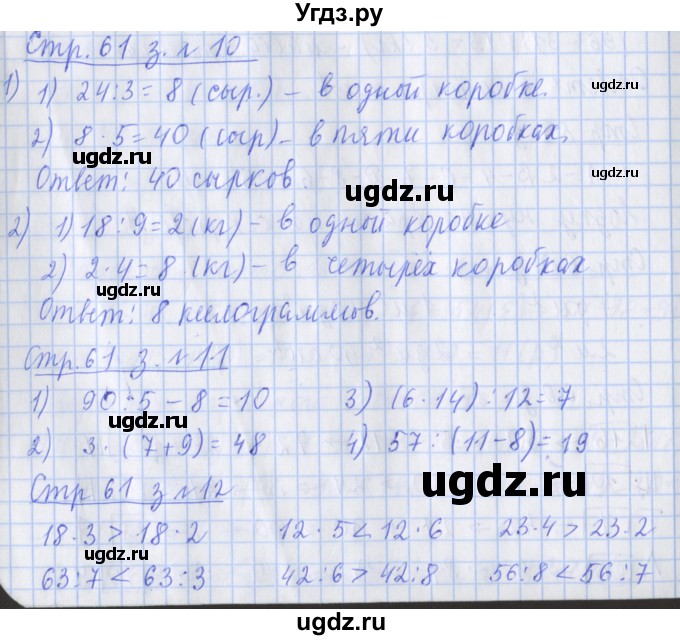 Угдз.ру
Стр. 61 з. № 10
1) 1) 24:3 = 8 (сыр.) – в одной коробке.
2) 8 · 5 = 40 (сыр) – в пяти коробках.
Ответ: 40 сырков.
2) 1) 18 : 9 = 2 (кг) – в одной коробке
2) 2 · 4 = 8 (кг) – в четырёх коробках
Ответ: 8 килограммов.
Стр. 61 з. № 11
1) 90 : 5 – 8 = 10 3) (6 · 14) : 12 = 7
2) 3 · (7 + 9) = 48 4) 57 : (11 – 8) = 19
Стр 61 з № 12
18 · 3 > 18 · 2 12 · 5 < 12 · 6 23 · 4 > 23 · 2
63 : 7 < 63 : 3 42 : 6 > 42 : 8 56 : 8 < 56 : 7
ugdz.ru
ugdz.ru
ugdz.ru
ugdz.ru
ugdz.ru
ugdz.ru
ugdz.ru
ugdz.ru
ugdz.ru
ugdz.ru
ugdz.ru
ugdz.ru
ugdz.ru